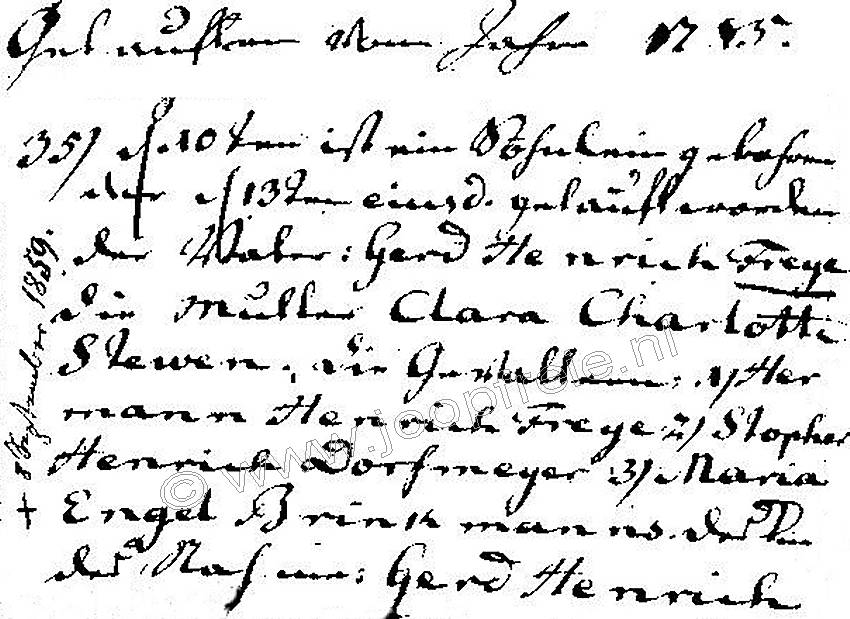 Getauften vom Jahre 17
35) d 10ten ist ein Söhnlein gebohren
d 13ten eiusd. getauft worden
der Vater: Gerd Henrich Freye
die Mutter Clara Charlotte
Stewen, die Gevattern: 1) Her
mann Henrich Freye 2) Stopher
Henrich Dorfmeyer 3) Maria
Engel Brinkmanns
des Nahme: Gerd Henrich
+ 8 September 1859.
© www.joopinfie.nl